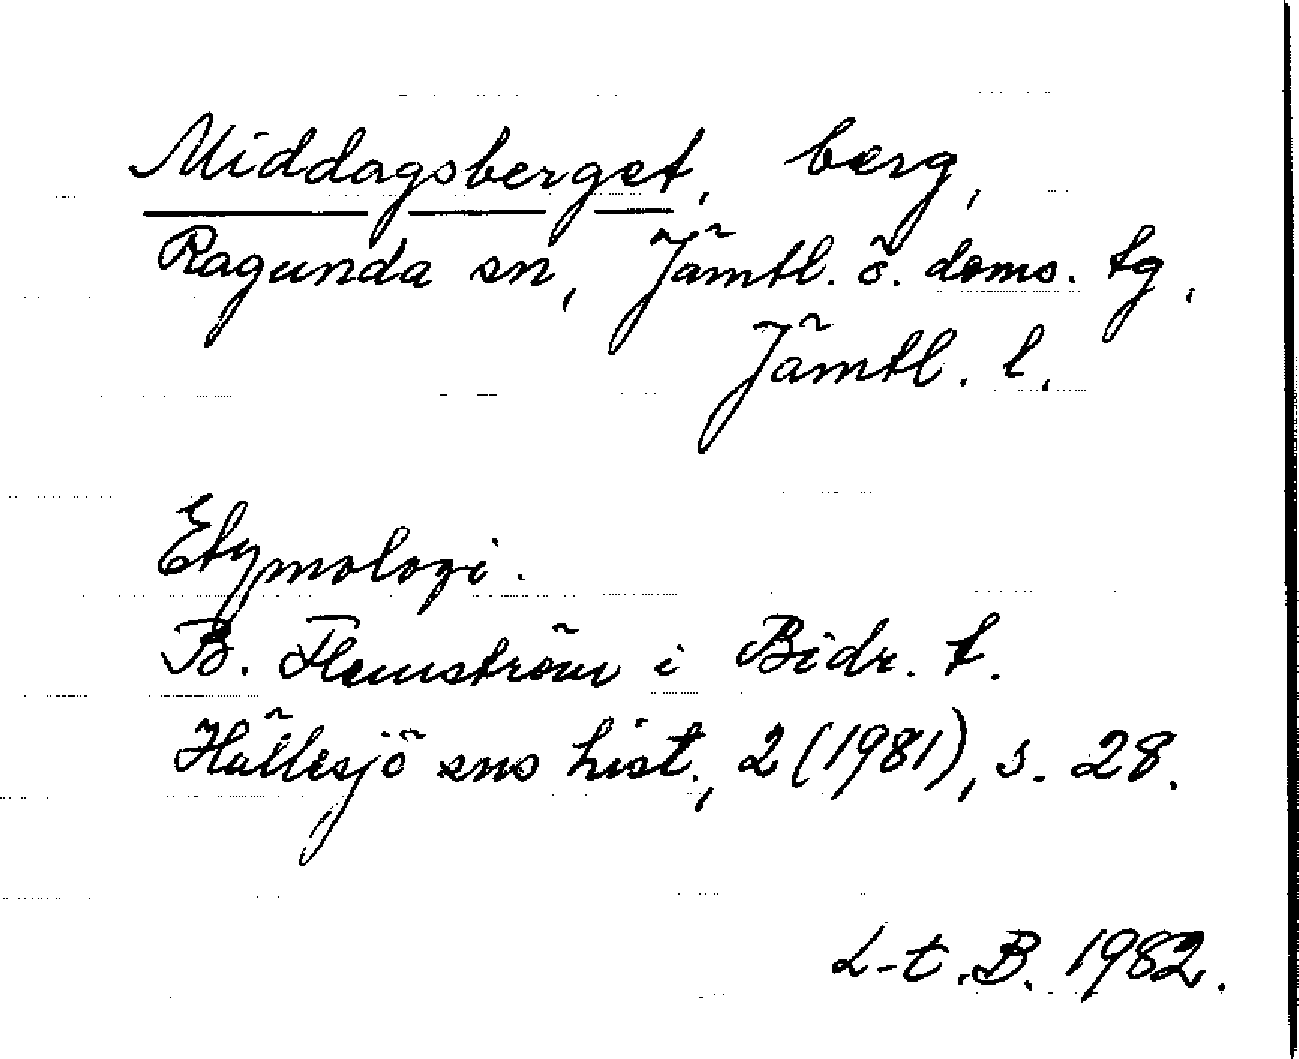 Middagsberget, berg,
Ragunda sn, Jämtl. ö. doms. tg,
Jämtl. l.
Etymologi.
B. Flemström i Bidr. t.
Hällesjö sns hist., 2 (1981), s. 28.
L-t. B. 1982.